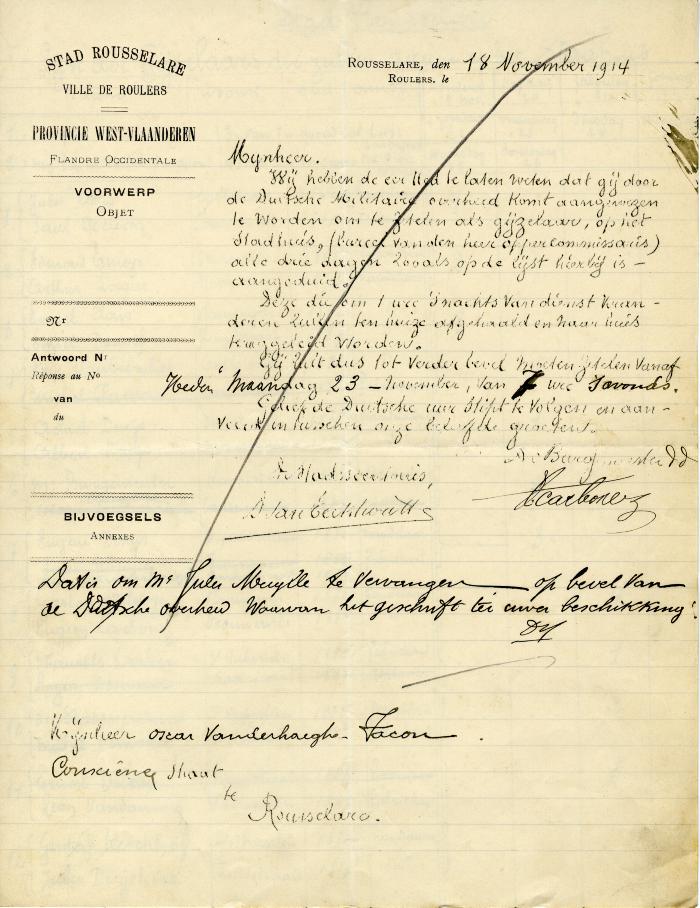 STAD ROUSSELARE
VILLE DE ROULERS
PROVINCIE WEST-VLAANDEREN
FLANDRE OCCIDENTALE
VOORWERP
OBJET
Nr
Antwoord Nr
Réponse au No
van
du
BIJVOEGSELS
ANNEXES
ROUSSELARE, den 18 November 1914
ROULERS, le
Mynheer.
Wij hebben de eer Ued te laten weten dat gij door
de Duitsche Militaire overheid komt aangewezen
te worden om te zetelen als gijzelaar, op het
Stadhuis, (bureel van den heer oppercommissaris)
alle drie dagen zooals op de lijst hierbij is-
aangeduid.
Deze die om 1 ure 's nachts van dienst veran-
deren zullen ten huize afgehaald en naar huis
teruggeleid worden.
Gij zult dus tot verder bevel moeten zetelen vanaf
"Heden" Maandag 23 - November, van 7 ure Savonds.
Gelief de Duitsche uur stipt te volgen en aan-
veerd intusschen onze beleefde groeten.
De Burgmeester dd
De Stadssecretaris,
Dat is om Mr Jules Muylle te vervangen op bevel van
de Duitsche overheid waarvan het geschrift ter uwer beschikking.
Mijnheer oscar Vanderhaeghe - Tacon.
Conscience straat
te
Rousselare.